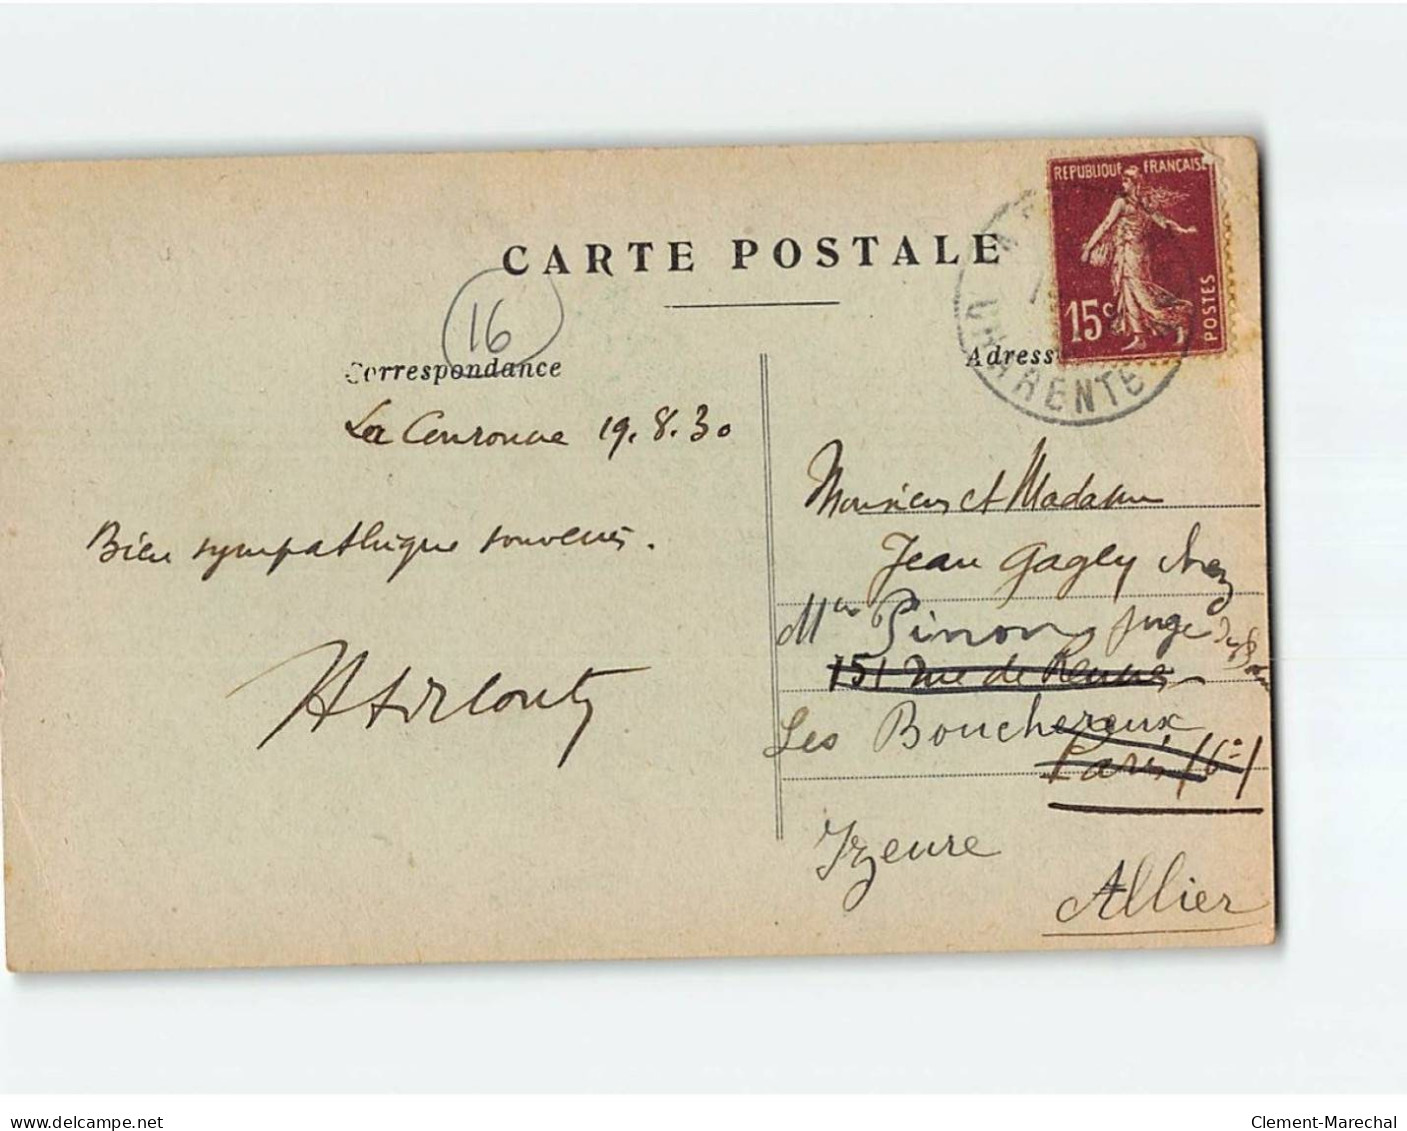 CARTE POSTALE
REPUBLIQUE FRANÇAISE
15c
POSTES
CHARENTE
16
Correspondance
Adresse
La Couronne 19.8.30
Bien sympathique souvenir.
Monsieur et Madame
Jean Gagey chez
Mme Pinon juge
151 rue de Rennes
Les Bouchereux
Paris (6e)
Yzeure
Allier
delcampe.net
Clement-Marechal